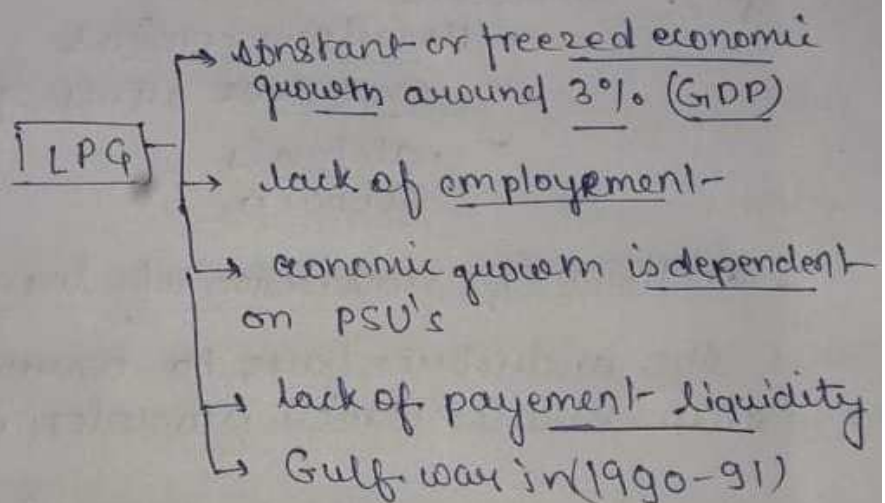 → constant or freezed economic
growth around 3% (GDP)
LPG
→ lack of employement
→ economic growth is dependent
on PSU's
→ lack of payement liquidity
→ Gulf war in (1990-91)